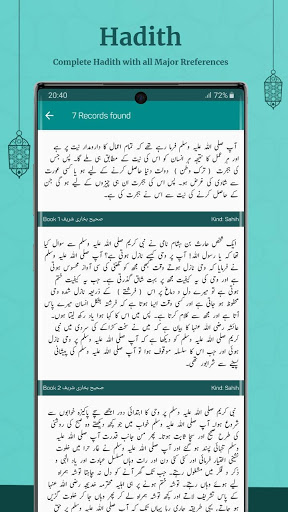 Hadith
Complete Hadith with all Major Rreferences
20:40
72%
7 Records found
آپ صلی اللہ علیہ وسلم فرما رہے تھے کہ تمام اعمال کا دارومدار نیت پر ہے
اور ہر عمل کا نتیجہ ہر انسان کو اس کی نیت کے مطابق ہی ملے گا۔ پس جس
کی ہجرت ( ترک وطن ) دولت دنیا حاصل کرنے کے لیے ہو یا کسی عورت
سے شادی کی غرض ہو۔ پس اس کی ہجرت ان ہی چیزوں کے لیے ہو گی جن
کے حاصل کرنے کی نیت سے اس نے ہجرت کی ہے۔
Book 1 صحیح بخاری شریف
Kind: Sahih
ایک شخص حارث بن ہشام نامی نے نبی کریم صلی اللہ علیہ وسلم سے سوال کیا
تھا کہ یا رسول اللہ! آپ پر وحی کیسے نازل ہوتی ہے؟ آپ صلی اللہ علیہ وسلم
نے فرمایا کہ وحی نازل ہوتے وقت کبھی مجھ کو گھنٹی کی سی آواز محسوس ہوتی
ہے اور وحی کی یہ کیفیت مجھ پر بہت شاق گذرتی ہے۔ جب یہ کیفیت ختم
ہوتی ہے تو میرے دل و دماغ پر اس ( فرشتے ) کے ذریعہ نازل شدہ وحی
محفوظ ہو جاتی ہے اور کسی وقت ایسا ہوتا ہے کہ فرشتہ بشکل انسان میرے پاس
آتا ہے اور مجھ سے کلام کرتا ہے۔ پس میں اس کا کہا ہوا یاد رکھ لیتا ہوں۔
عائشہ رضی اللہ عنہا کا بیان ہے کہ میں نے سخت کڑاکے کی سردی میں نبی
کریم صلی اللہ علیہ وسلم کو دیکھا ہے کہ آپ صلی اللہ علیہ وسلم پر وحی نازل
ہوئی اور جب اس کا سلسلہ موقوف ہوا تو آپ صلی اللہ علیہ وسلم کی پیشانی
پسینے سے شرابور تھی۔
Book 2 صحیح بخاری شریف
Kind: Sahih
نبی کریم صلی اللہ علیہ وسلم پر وحی کا ابتدائی دور اچھے سچے پاکیزہ خوابوں سے
شروع ہوا۔ آپ صلی اللہ علیہ وسلم خواب میں جو کچھ دیکھتے وہ صبح کی روشنی
کی طرح صحیح اور سچا ثابت ہوتا۔ پھر من جانب قدرت آپ صلی اللہ علیہ
وسلم تنہائی پسند ہو گئے اور آپ صلی اللہ علیہ وسلم نے غار حرا میں خلوت
نشینی اختیار فرمائی اور کئی کئی دن اور رات وہاں مسلسل عبادت اور یاد الٰہی و
ذکر و فکر میں مشغول رہتے۔ جب تک گھر آنے کو دل نہ چاہتا توشہ ہمراہ
لیے ہوئے وہاں رہتے۔ توشہ ختم ہونے پر ہی اہلیہ محترمہ خدیجہ رضی اللہ عنہا
کے پاس تشریف لاتے اور کچھ توشہ ہمراہ لے کر پھر وہاں جا کر خلوت گزیں
ہو جاتے، یہی طریقہ جاری رہا یہاں تک کہ آپ صلی اللہ علیہ وسلم پر حق